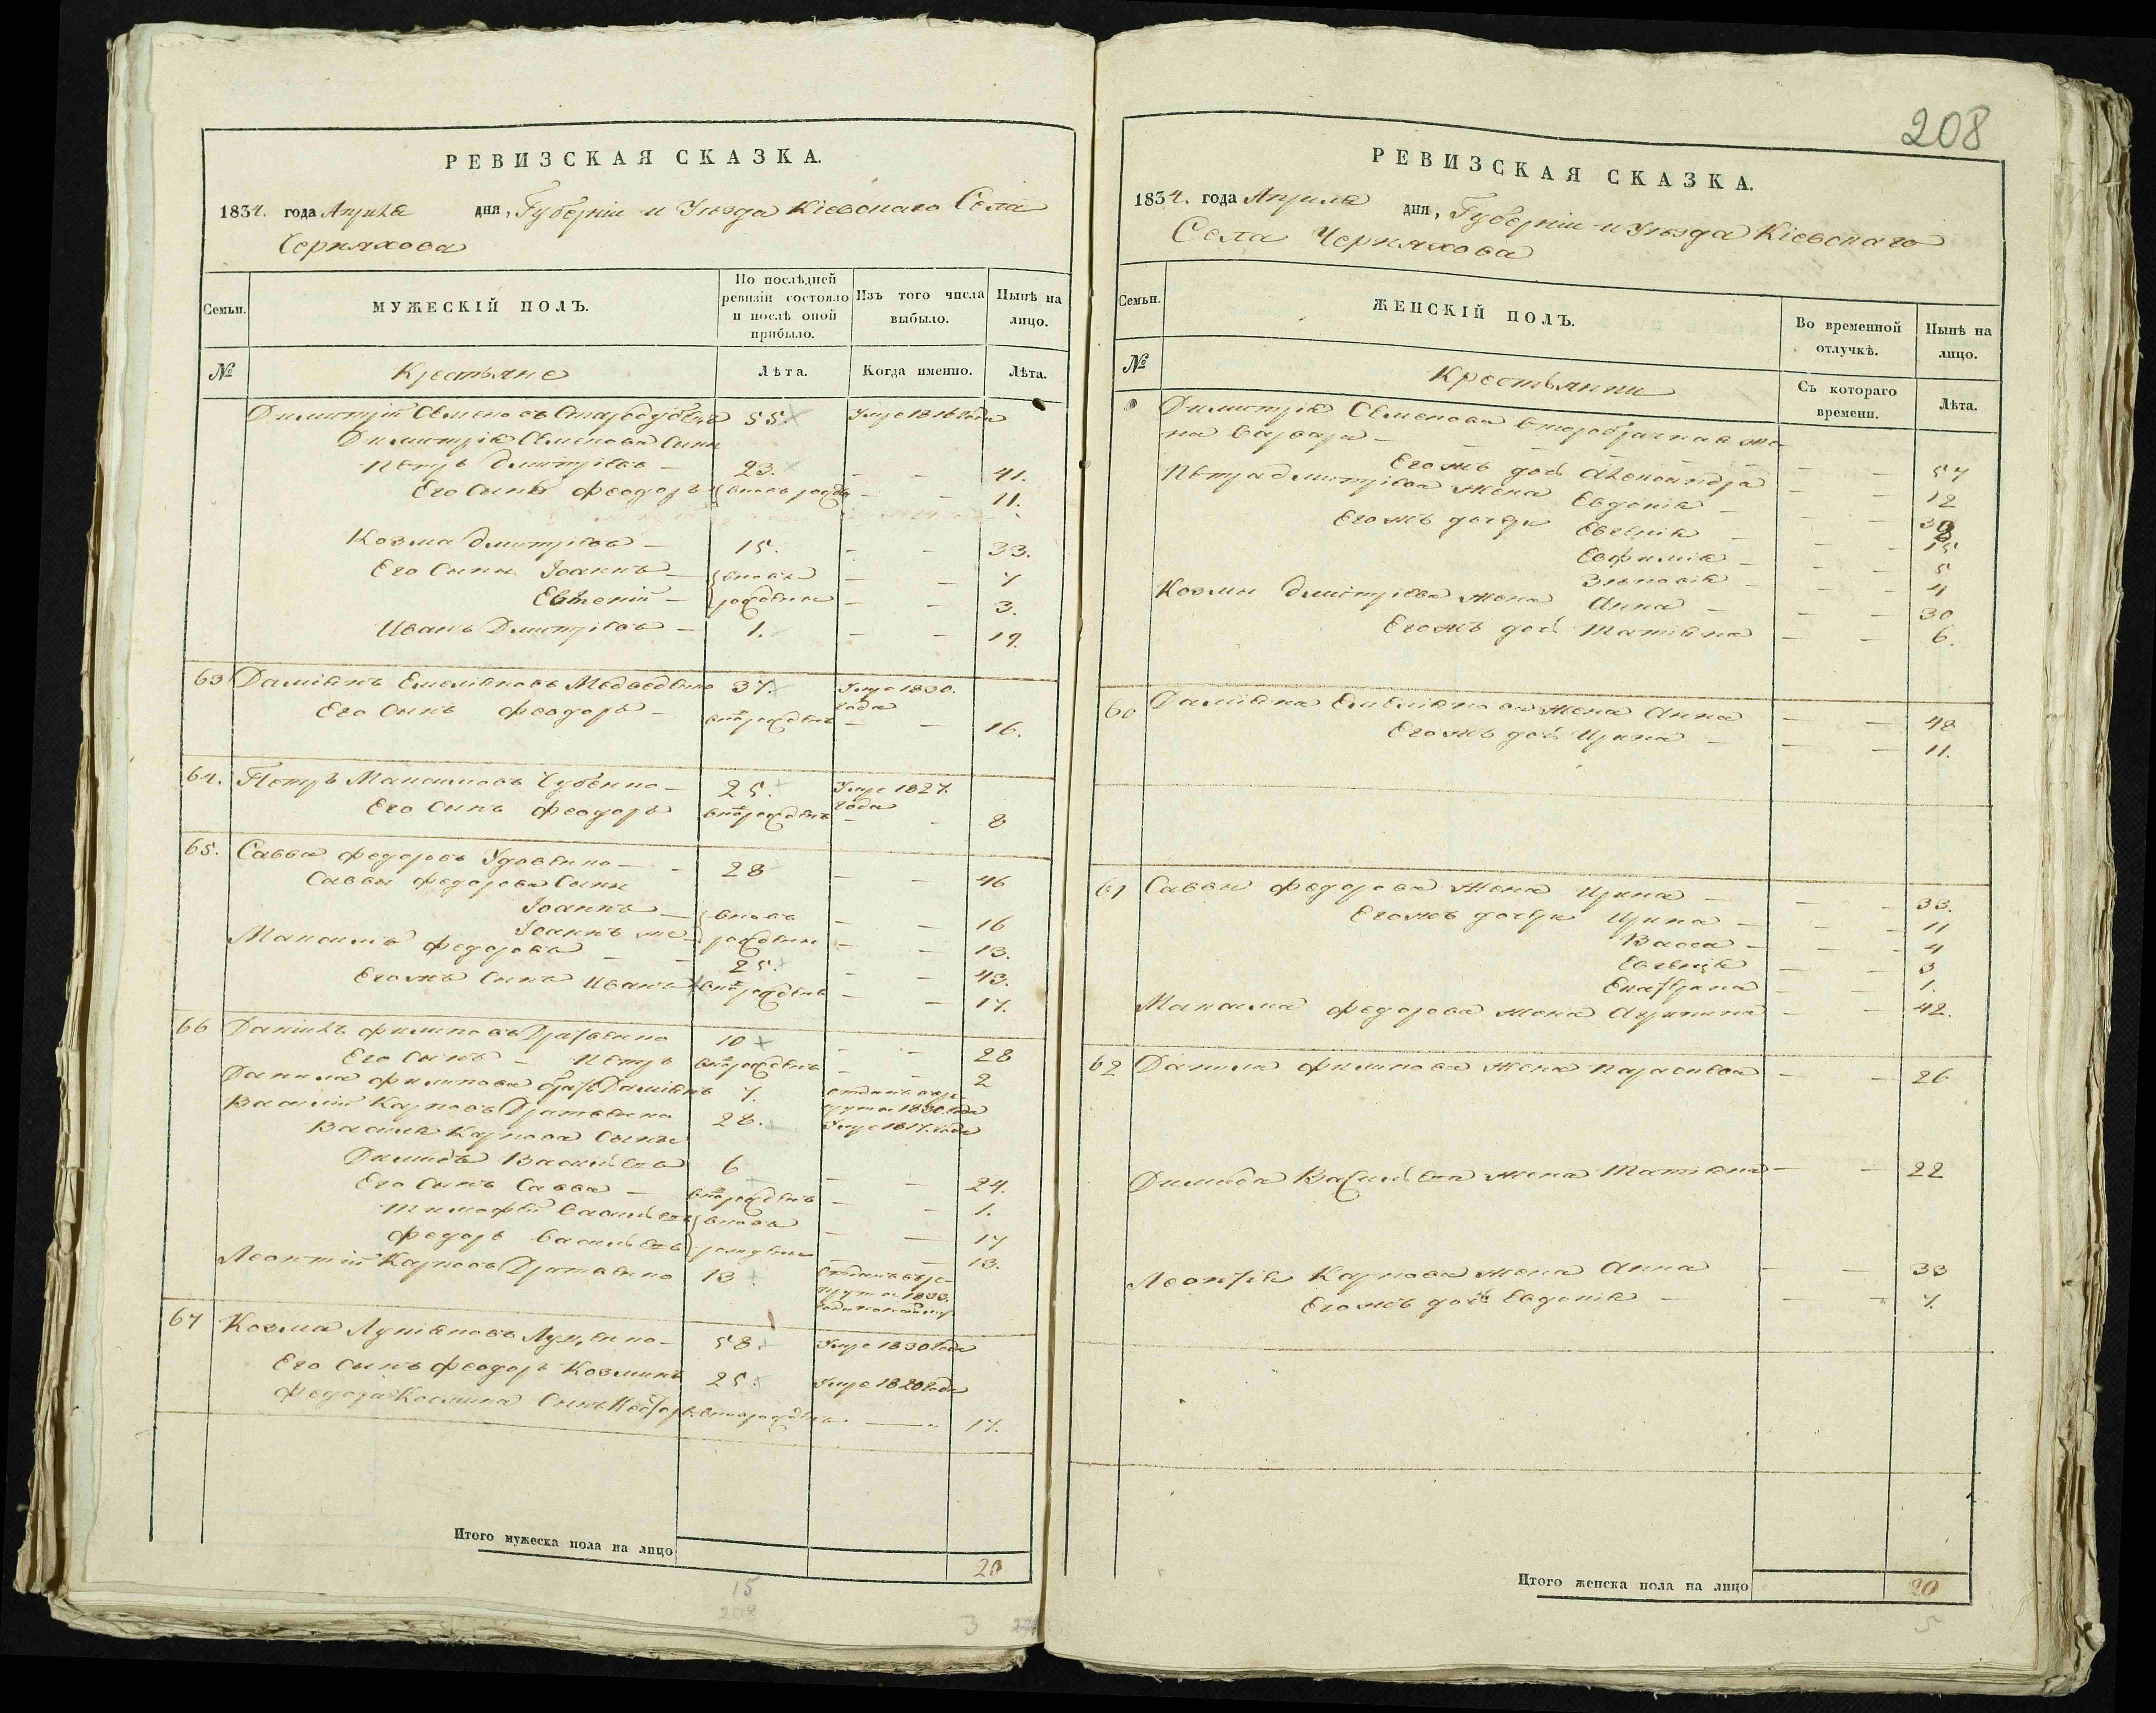 РЕВИЗСКАЯ СКАЗКА.
1834. года Апреля дня, Губерніи и Уезда Кіевскаго Села
Черняхова
Семьи.
МУЖЕСКІЙ ПОЛЪ.
По послѣдней ревизіи состояло и послѣ оной прибыло.
Изъ того числа выбыло.
Нынѣ на лицо.
№ Крестьяне Лѣта. Когда именно. Лѣта.
Димитрій Семеновъ 55. Умре 1816 года
Димитрія Семенова Сыны
Петръ Дмитріевъ — 23. — — 41.
Его Сынъ Феодоръ вновь рожд — — 11.
Козма Дмитріевъ — 15. — — 33.
Его Сыны Іоаннъ — вновь — — 7
Евгеній — рождены — — 3.
Иванъ Дмитріевъ — 1. — — 19.
63 Даміянъ Емеліяновъ Медведенко 37. Умре 1830. года
Его Сынъ Феодоръ — внов рожденъ — — 16.
64. Петръ Максимовъ Чубенко — 25. Умре 1827. года
Его Сынъ Феодоръ внов рожденъ — — 8
65. Савва Федоровъ Удовенко — 28 — — 46
Саввы Федорова Сыны
Іоаннъ — вновь — — 16
Іоаннъ же — рождены — — 13.
Максимъ Федоровъ — — 25. — — 43.
Егожъ Сынъ Иванъ внов рожденъ — — 17.
66 Данилъ Филиповъ 10 — — 28
Его Сынъ — Петръ внов рожденъ — — 2
Данила Филипова братъ Даміянъ 7. отданъ в рекруты 1830. года
Василій Карповъ 28. Умре 1817. года
Василя Карпова Сыны
Димидъ Васильевъ 6 — — 24.
Его Сынъ Савва — внов рожденъ — — 1.
Тимофей Васильевъ вновь — — 17
Федоръ Васильевъ рождены — — 13.
Леонтій Карповъ 13 Отданъ в рекруты 1833. года
67 Козма Лукіяновъ 58. Умре 1830 года
Его Сынъ Феодоръ Козминъ 25. Умре 1820 года
Федора Козмина Сынъ вновь рожденъ — 17.
Итого мужеска пола на лицо 20
15
208
3
208
РЕВИЗСКАЯ СКАЗКА.
1834. года Апреля дня, Губерніи и Уезда Кіевскаго
Села Черняхова
Семьи.
ЖЕНСКІЙ ПОЛЪ.
Во временной отлучкѣ.
Нынѣ на лицо.
№ Крестьянки Съ котораго времени. Лѣта.
Димитрія Семенова второбрачная же-
на Варвара — — — 57
Егожъ дочь Александра — — 12
Петра Дмитріева жена Евдокія — — —
Егожъ дочери Евгенія — — — 15
Евфимія — — — 5
Зиновія — — — 4
Козмы Дмитріева жена Анна — — — 30
Егожъ дочь Татіяна — — 6.
60 Даміяна Емеліянова жена Анна — — 48
Егожъ дочь Ирина — — — 11.
61 Саввы Федорова жена Ирина — — — 33.
Егожъ дочери Ирина — — — 11
Васса — — — 4
Евгенія — — 3
Екатерина — — 1.
Максима Федорова жена — — 42.
62 Данила Филипова жена Параскева — — 26
Димида Васильева жена Татіяна — — 22
Леонтія Карпова жена Анна — — 33
Егожъ дочь Евдокія — — — 7.
Итого женска пола на лицо 20
5